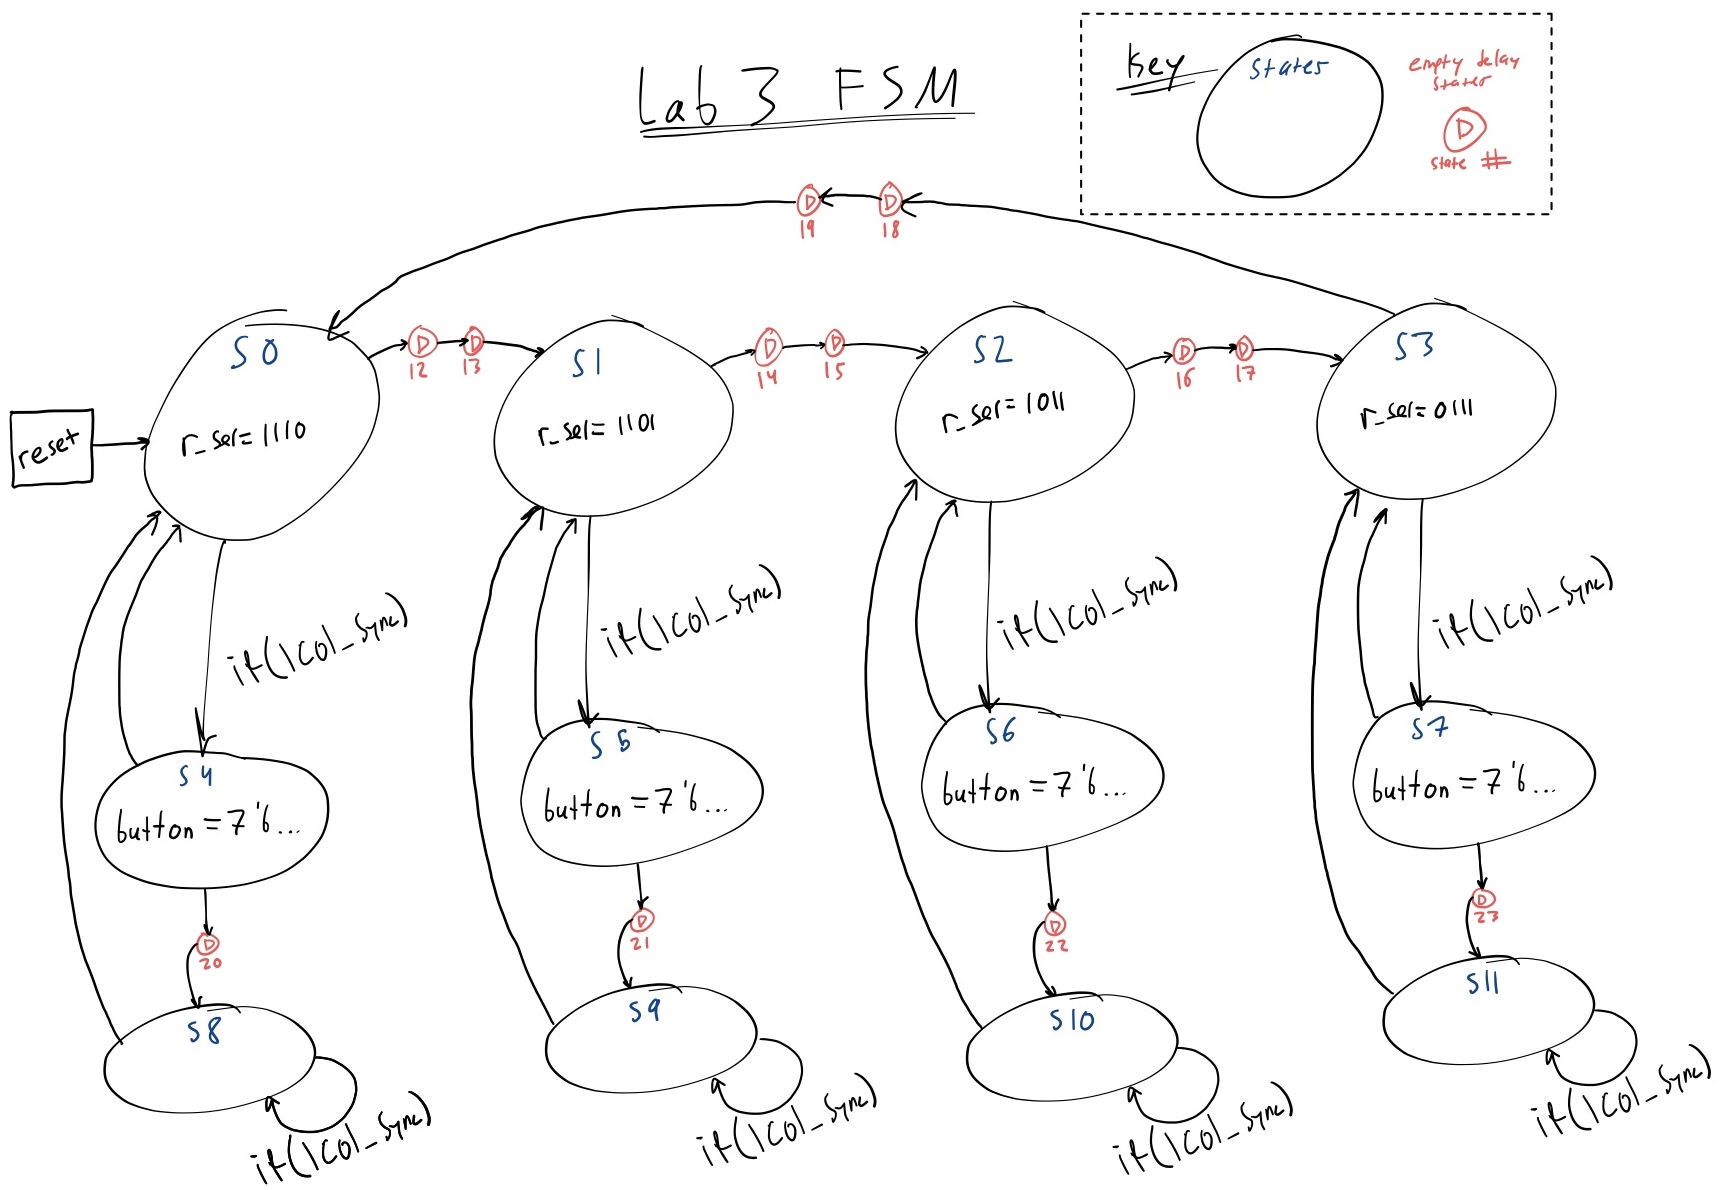 Lab 3 FSM
Key
states
empty delay
states
D
state #
D
19
D
18
reset
S0
r_sel=1110
D
12
D
13
S1
r_sel=1101
D
14
D
15
S2
r_sel=1011
D
16
D
17
S3
r_sel=0111
if(|col_sync)
if(|col_sync)
if(|col_sync)
if(|col_sync)
S4
button=7'b...
S5
button=7'b...
S6
button=7'b...
S7
button=7'b...
D
20
D
21
D
22
D
23
S8
S9
S10
S11
if(|col_sync)
if(|col_sync)
if(|col_sync)
if(|col_sync)